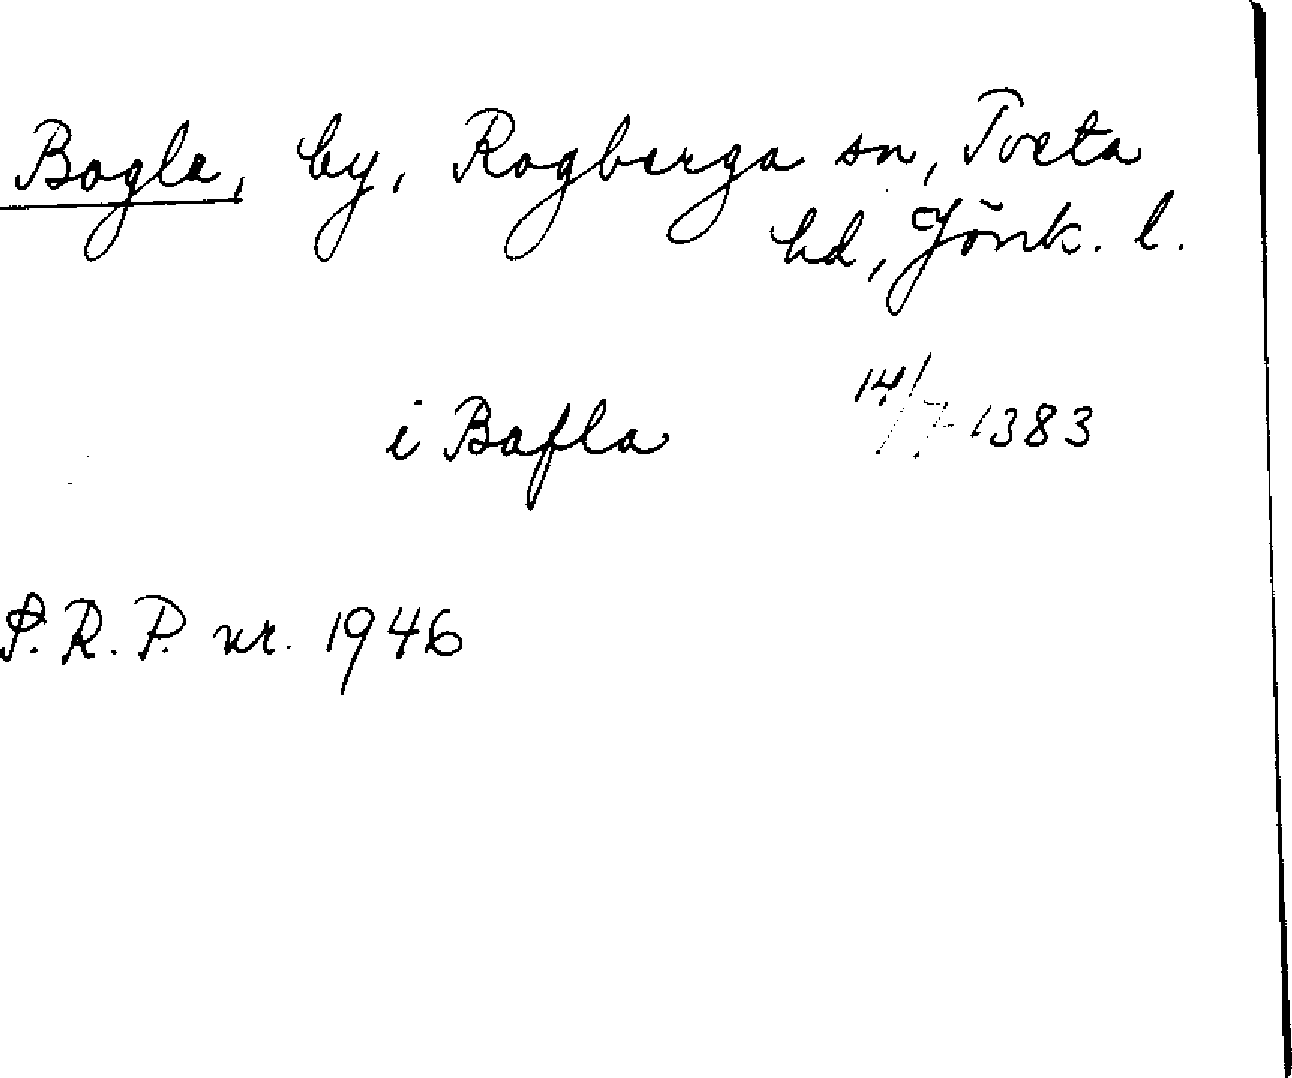 Bogla, by, Rogberga sn, Tveta
hd, Jönk. l.
i Bafla 14/7 1383
S.R.P. nr. 1946